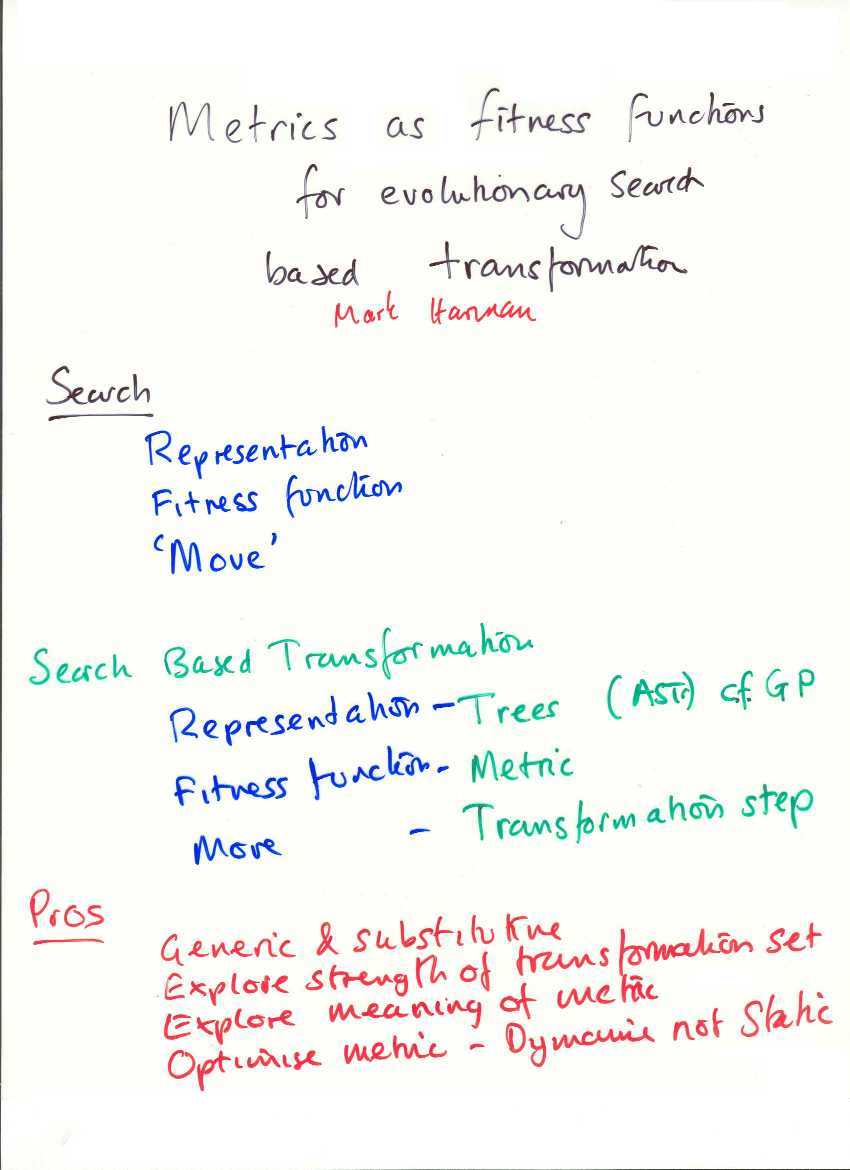 Metrics as fitness functions
for evolutionary search
based transformation
Mark Harman
Search
Representation
Fitness function
'Move'
Search Based Transformation
Representation - Trees (AST) cf. GP
Fitness function - Metric
Move - Transformation step
Pros
Generic & substitutive
Explore strength of transformation set
Explore meaning of metric
Optimise metric - Dymamic not Static